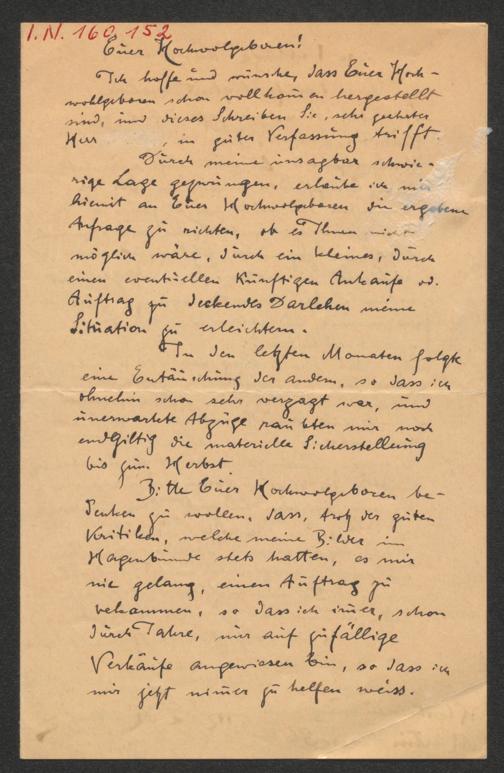 I.N. 160.152
Euer Hochwolgeboren!
Ich hoffe und wünsche, dass Euer Hoch-
wohlgeboren schon vollkomen hergestellt
sind, und dieses Schreiben Sie, sehr geehrter
Herr , in guter Verfassung trifft.
Durch meine unsagbar schwie-
rige Lage gezwungen, erlaube ich mir
hiemit an Euer Hochwolgeboren die ergebene
Anfrage zu richten, ob es Ihnen nicht
möglich wäre, durch ein kleines, durch
einen eventuellen künftigen Ankaufe od.
Auftrag zu deckendes Darlehen meine
Situation zu erleichtern.
In den letzten Monaten folgte
eine Entäuschung der andern, so dass ich
ohnehin schon sehr verzagt war, und
unerwartete Abzüge raubten mir noch
endgiltig die materielle Sicherstellung
bis zum Herbst.
Bitte Euer Hochwolgeboren be-
denken zu wollen, dass, trotz der guten
Kritiken, welche meine Bilder im
Hagenbunde stets hatten, es mir
nie gelang, einen Auftrag zu
bekommen, so dass ich imer, schon
durch Jahre, nur auf zufällige
Verkäufe angewiesen bin, so dass ich
mir jetzt nimer zu helfen weiss.